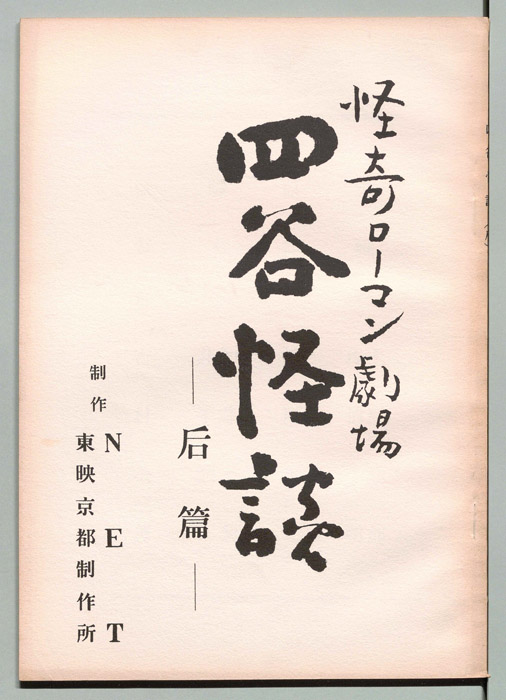 怪奇ローマン劇場
四谷怪談
―后篇―
制作
NET
東映京都制作所